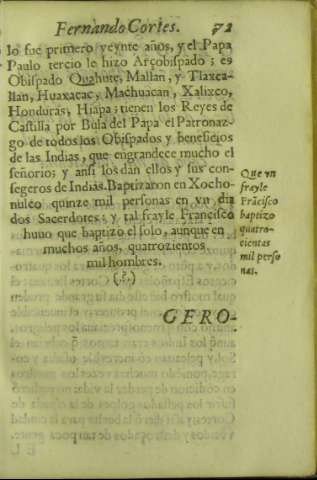 Fernando Cortes. 72
lo fue primero veynte años, y el Papa
Paulo tercio le hizo Arçobispado; es
Obispado Quahute, Mallan, y Tlaxca-
llan, Huaxacac, Machuacan, Xalizco,
Honduras, Hiapa; tienen los Reyes de
Castilla por Bula del Papa el Patronaz-
go de todos los Obispados y beneficios
de las Indias, que engrandece mucho el
señorio; y ansi los dan ellos y sus con-
segeros de Indias. Baptizaron en Xocho-
nulco quinze mil personas en vn dia
dos Sacerdotes; y tal frayle Francisco
huuo que baptizo el solo, aunque en
muchos años, quatrozientos
mil hombres.
Que vn
frayle
Frãcisco
baptizo
quatro-
cientas
mil perso
nas.
GERO-